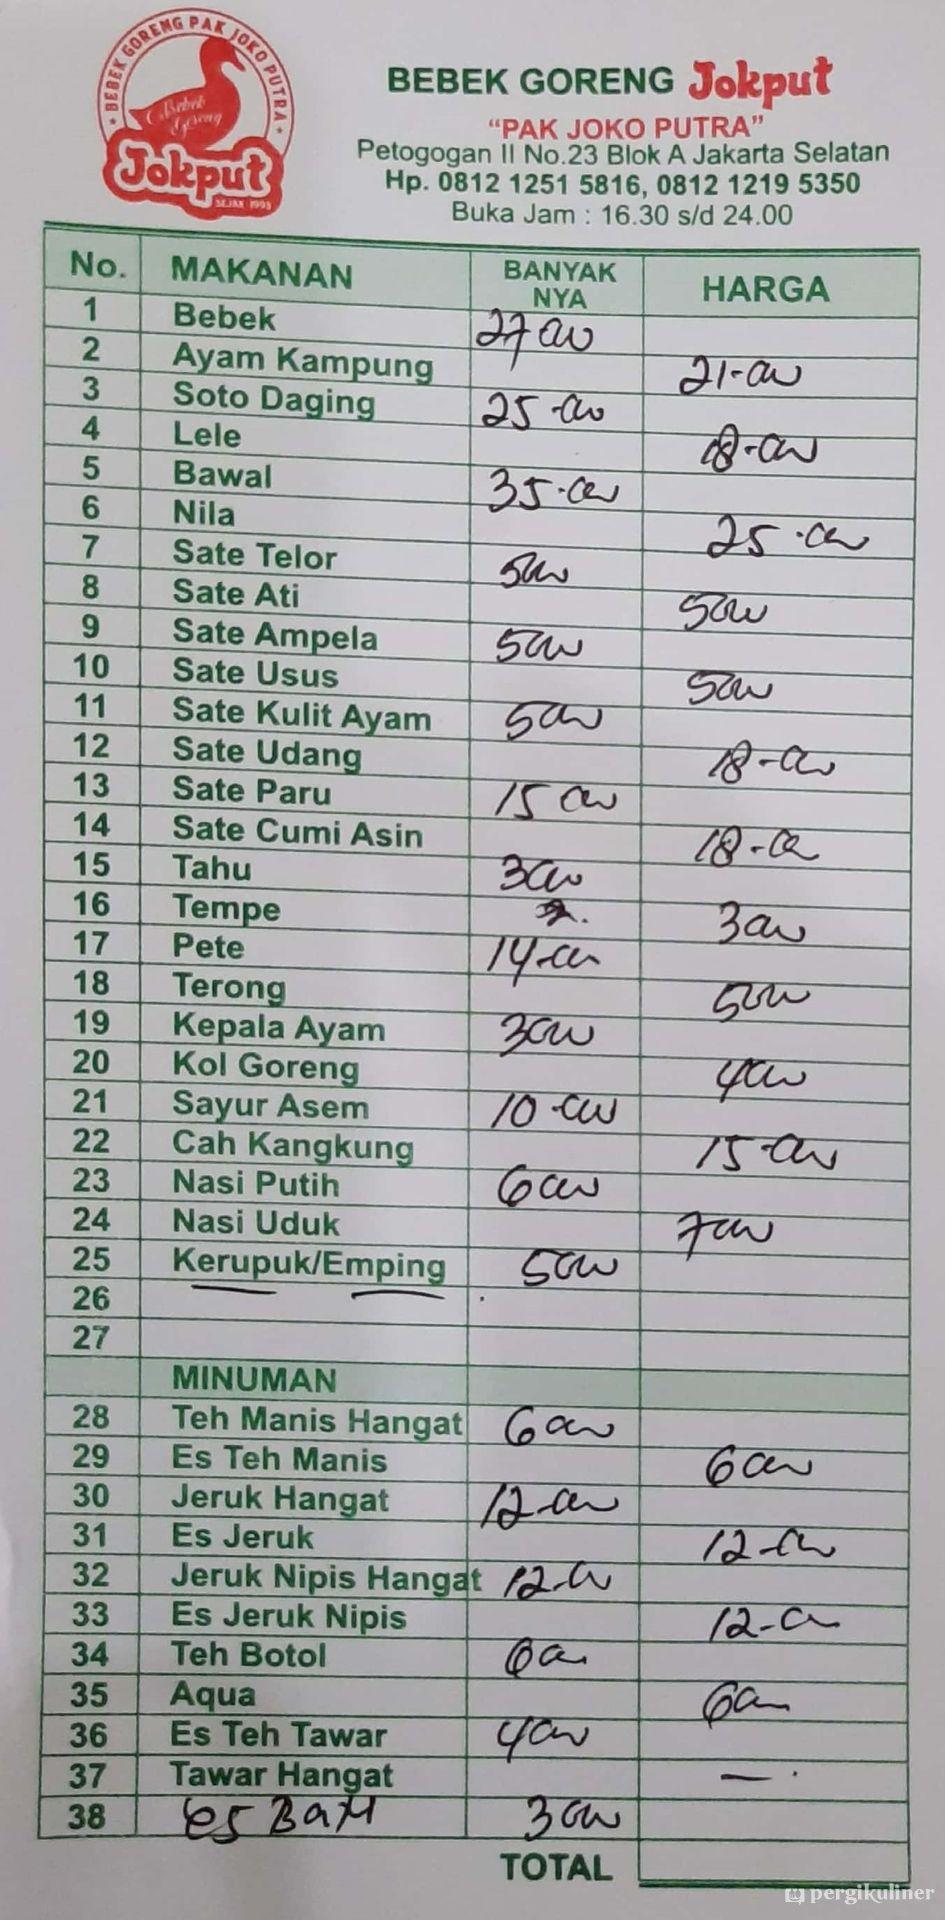 BEBEK GORENG PAK JOKO PUTRA
Bebek Goreng
Jokput
SEJAK 1993
BEBEK GORENG Jokput
"PAK JOKO PUTRA"
Petogogan II No.23 Blok A Jakarta Selatan
Hp. 0812 1251 5816, 0812 1219 5350
Buka Jam : 16.30 s/d 24.00
No. MAKANAN BANYAK NYA HARGA
1 Bebek 27000
2 Ayam Kampung 21-000
3 Soto Daging 25-000
4 Lele 18-000
5 Bawal 35-000
6 Nila 25-000
7 Sate Telor 5000
8 Sate Ati 5000
9 Sate Ampela 5000
10 Sate Usus 5000
11 Sate Kulit Ayam 5000
12 Sate Udang 18-000
13 Sate Paru 15000
14 Sate Cumi Asin 18-000
15 Tahu 3000
16 Tempe 3000
17 Pete 14-000
18 Terong 5000
19 Kepala Ayam 3000
20 Kol Goreng 4000
21 Sayur Asem 10-000
22 Cah Kangkung 15-000
23 Nasi Putih 6000
24 Nasi Uduk 7000
25 Kerupuk/Emping 5000
26
27
MINUMAN
28 Teh Manis Hangat 6000
29 Es Teh Manis 6000
30 Jeruk Hangat 12-000
31 Es Jeruk 12-000
32 Jeruk Nipis Hangat 12-000
33 Es Jeruk Nipis 12-000
34 Teh Botol 6000
35 Aqua 6000
36 Es Teh Tawar 4000
37 Tawar Hangat —
38 es Batu 3000
TOTAL
pergikuliner